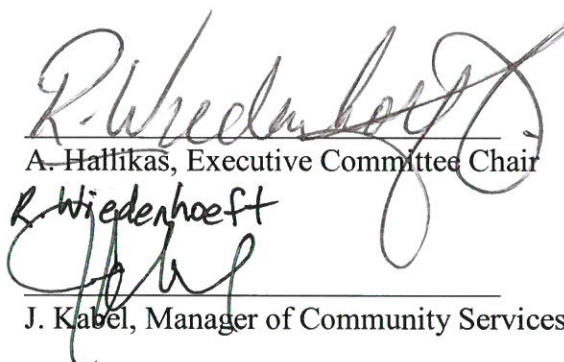 R. Wiedenhoeft
A. Hallikas, Executive Committee Chair
R. Wiedenhoeft
J. Kabel, Manager of Community Services